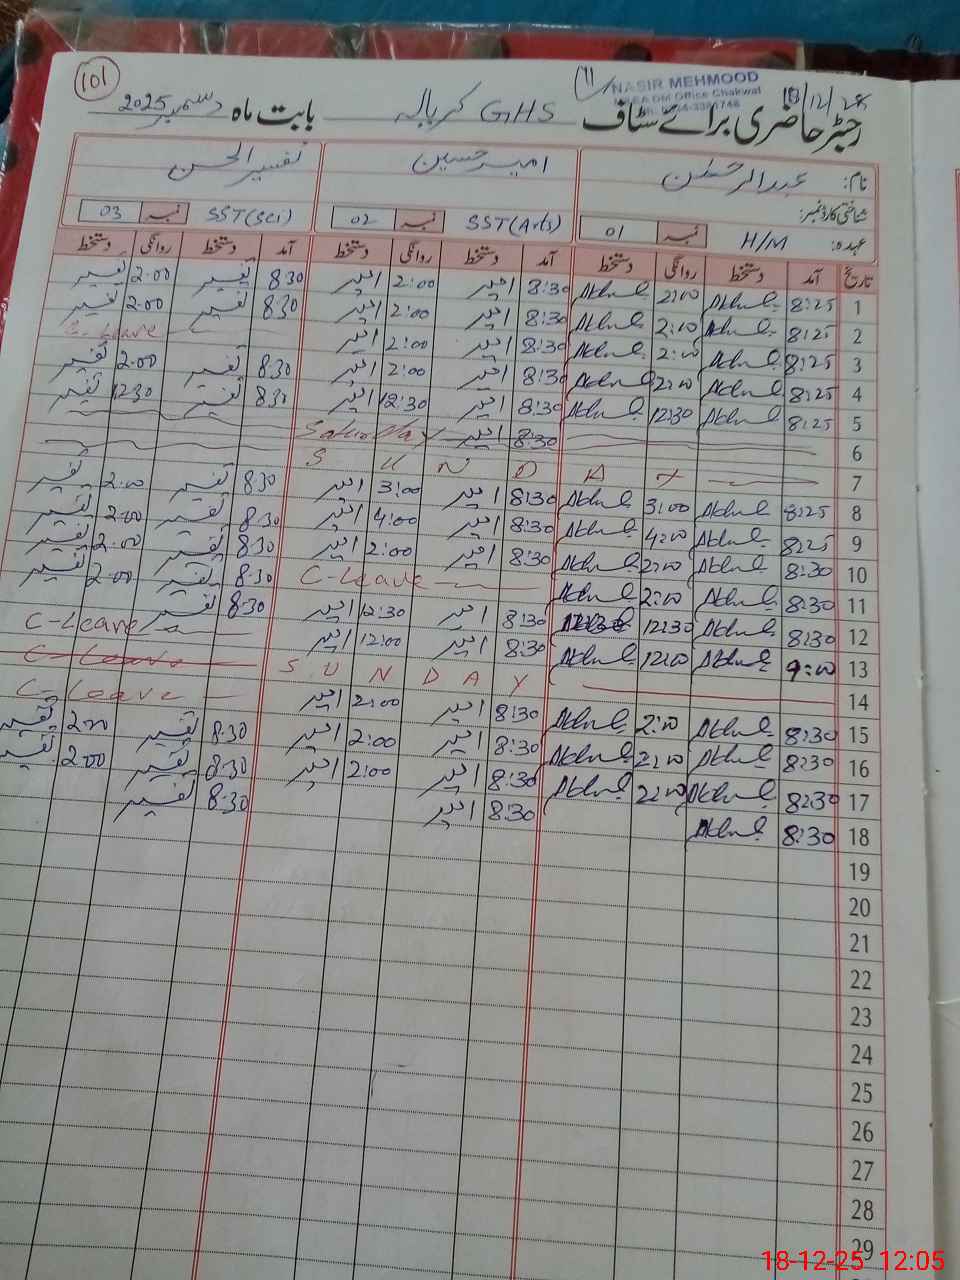 101
11
NASIR MEHMOOD
DM Office Chakwal
18/12/25
رجسٹر حاضری برائے سٹاف GHS کریالہ بابت ماہ دسمبر 2025
نام: عبدالرحمٰن امیر حسین تفسیر الحسن
شناختی کارڈ نمبر:
عہدہ: H/M نمبر 01 SST(Arts) نمبر 02 SST(Sci) نمبر 03
تاریخ آمد دستخط روانگی دستخط آمد دستخط روانگی دستخط آمد دستخط روانگی دستخط
1 8:25 2:00 8:30 امیر 2:00 امیر 8:30 تفسیر 2:00 تفسیر
2 8:25 2:00 8:30 امیر 2:00 امیر 8:30 تفسیر 2:00 تفسیر
3 8:25 2:00 8:30 امیر 2:00 امیر C-Leave
4 8:25 2:00 8:30 امیر 2:00 امیر 8:30 تفسیر 2:00 تفسیر
5 8:25 12:30 8:30 امیر 12:30 امیر 8:30 تفسیر 12:30 تفسیر
6 8:30 امیر Saturday
7 S U N D A Y
8 8:25 3:00 8:30 امیر 3:00 امیر 8:30 تفسیر 2:00 تفسیر
9 8:25 4:00 8:30 امیر 4:00 امیر 8:30 تفسیر 2:00 تفسیر
10 8:30 2:00 8:30 امیر 2:00 امیر 8:30 تفسیر 2:00 تفسیر
11 8:30 2:00 C-Leave 8:30 تفسیر 2:00 تفسیر
12 8:30 12:30 8:30 امیر 12:30 امیر 8:30 تفسیر C-Leave
13 9:00 12:00 8:30 امیر 12:00 امیر C-Leave
14 S U N D A Y
15 8:30 2:00 8:30 امیر 2:00 امیر C-Leave
16 8:30 2:00 8:30 امیر 2:00 امیر 8:30 تفسیر 2:00 تفسیر
17 8:30 2:00 8:30 امیر 2:00 امیر 8:30 تفسیر 2:00 تفسیر
18 8:30 8:30 امیر 8:30 تفسیر
19
20
21
22
23
24
25
26
27
28
29
18-12-25 12:05